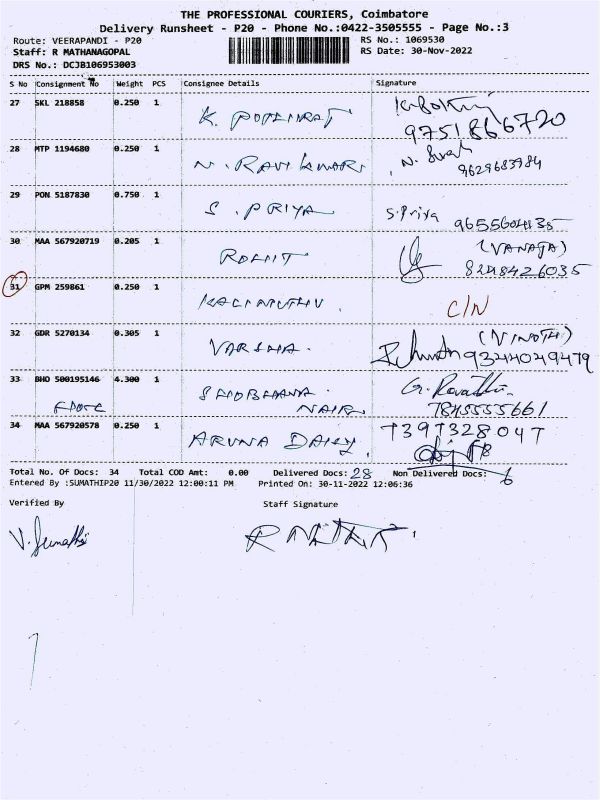 THE PROFESSIONAL COURIERS, Coimbatore
Delivery Runsheet - P20 - Phone No.:0422-3505555 - Page No.:3
Route: VEERAPANDI - P20
RS No.: 1069530
Staff: R MATHANAGOPAL
RS Date: 30-Nov-2022
DRS No.: DCJB106953003
S No Consignment No Weight PCS Consignee Details Signature
27 SKL 218858 0.250 1
9751866720
28 MTP 1194680 0.250 1 N. RAVIKUMAR
9629683984
29 PON 5187830 0.750 1 S. PRIYA S. Priya 9655604135
30 MAA 567920719 0.205 1 ROHIT (VANAJA)
8248426035
31 GPM 259861 0.250 1 KALIMUTHU C/N
32 GDR 5270134 0.305 1 VARSHA. (VINOTH)
9344049479
33 BHO 500195146 4.300 1 SHOBHANA NAIR G. Revathi
7845555661
34 MAA 567920578 0.250 1 ARUNA DAISY. 7397328047
Total No. Of Docs: 34 Total COD Amt: 0.00 Delivered Docs: 28 Non Delivered Docs: 6
Entered By :SUMATHIP20 11/30/2022 12:00:11 PM Printed On: 30-11-2022 12:06:36
Verified By Staff Signature
V. Sumathi